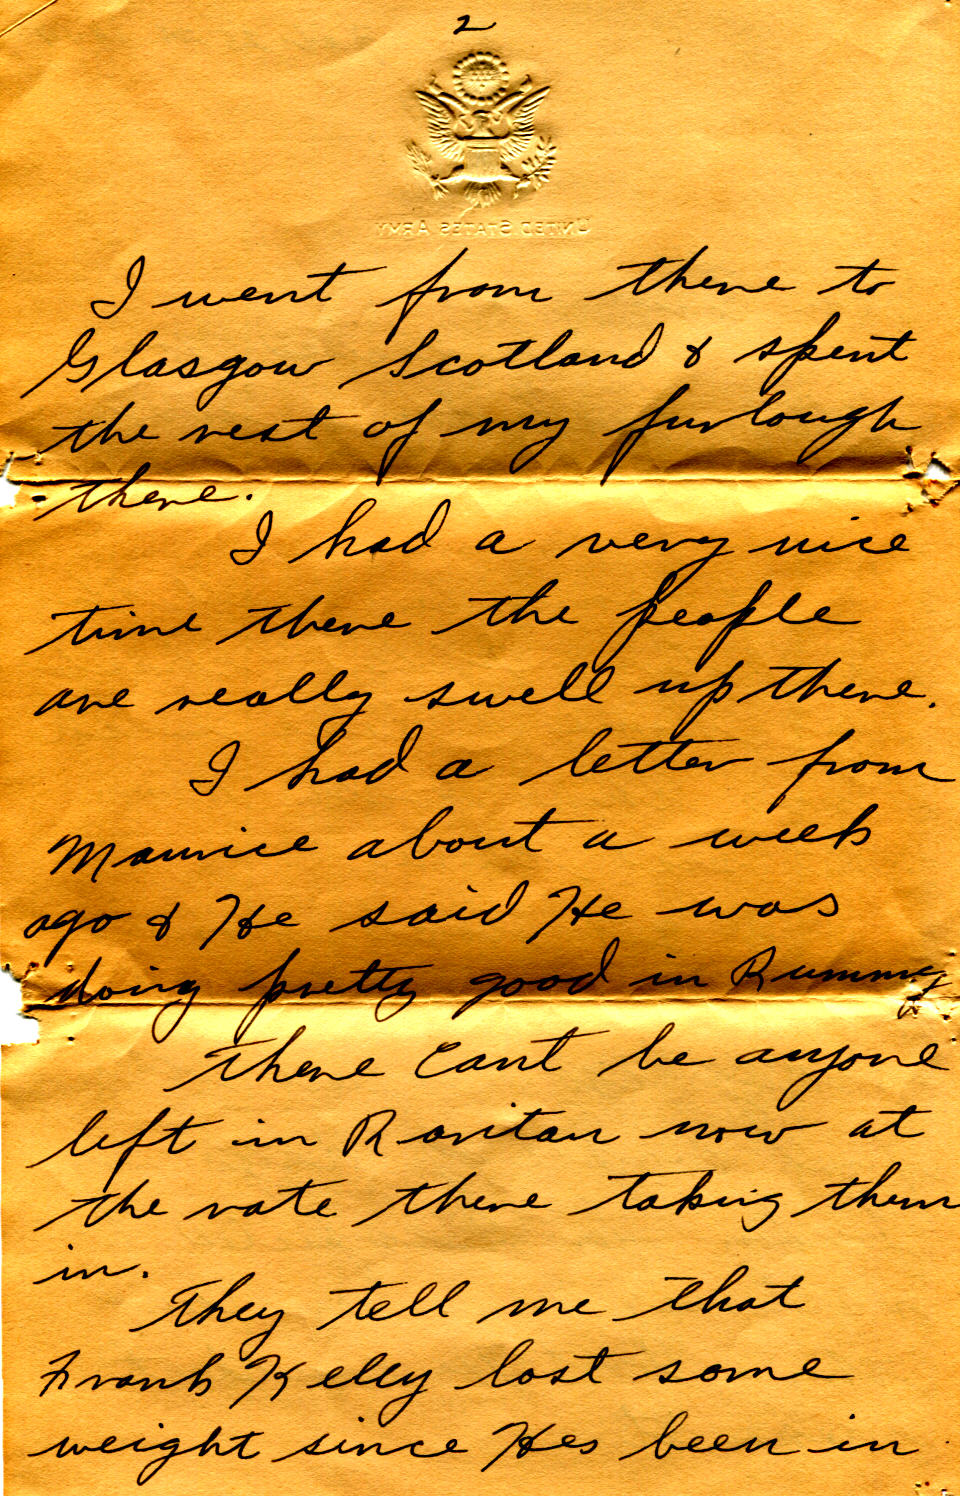 2
UNITED STATES ARMY
I went from there to
Glasgow Scotland & spent
the rest of my furlough
there.
I had a very nice
time there the people
are really swell up there.
I had a letter from
Maurice about a week
ago & He said He was
doing pretty good in Rummy
There Cant be anyone
left in Raritan now at
the rate there taking them
in.
They tell me that
Frank Kelly lost some
weight since Hes been in